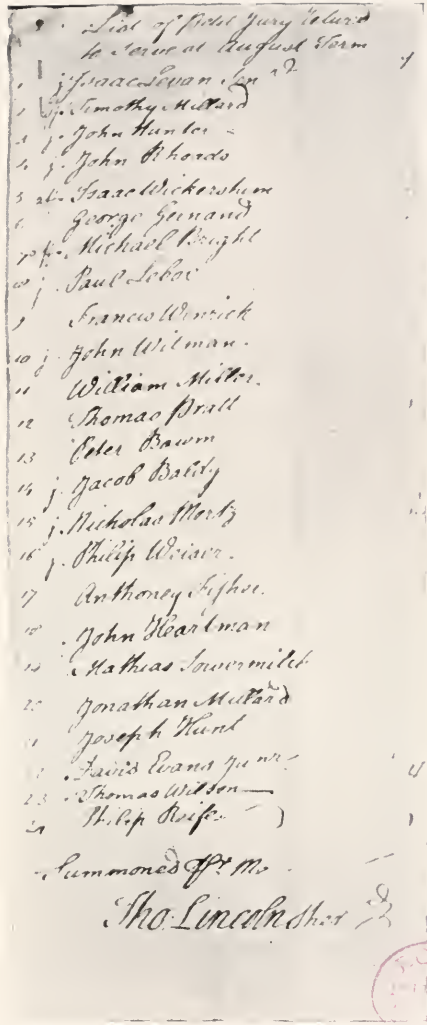 List of Petit Jury Return'd
to Serve at August Term
1 j Isaac Levan Sen
2 j. Timothy Millard
3 j. John Hunter
4 j. John Rhoads
5 Isaac Wickersham
6 George Geinand
7 Michael Bright
8 j. Paul
9 Francis Wenrick
10 j. John Witman.
11 William Miller.
12 Thomas Pratt
13 Peter Bawm
14 j. Jacob Baldy
15 j. Nicholas Mertz
16 j. Philip Weiser.
17 Anthoney Fisher.
18 John Heartman
19 Mathias Sowermilch
20 Jonathan Millard
21 Joseph Hunt
22 David Evans Junr
23 Thomas Willson
24 Philip
Summoned pr. Me
Tho. Lincoln Sher